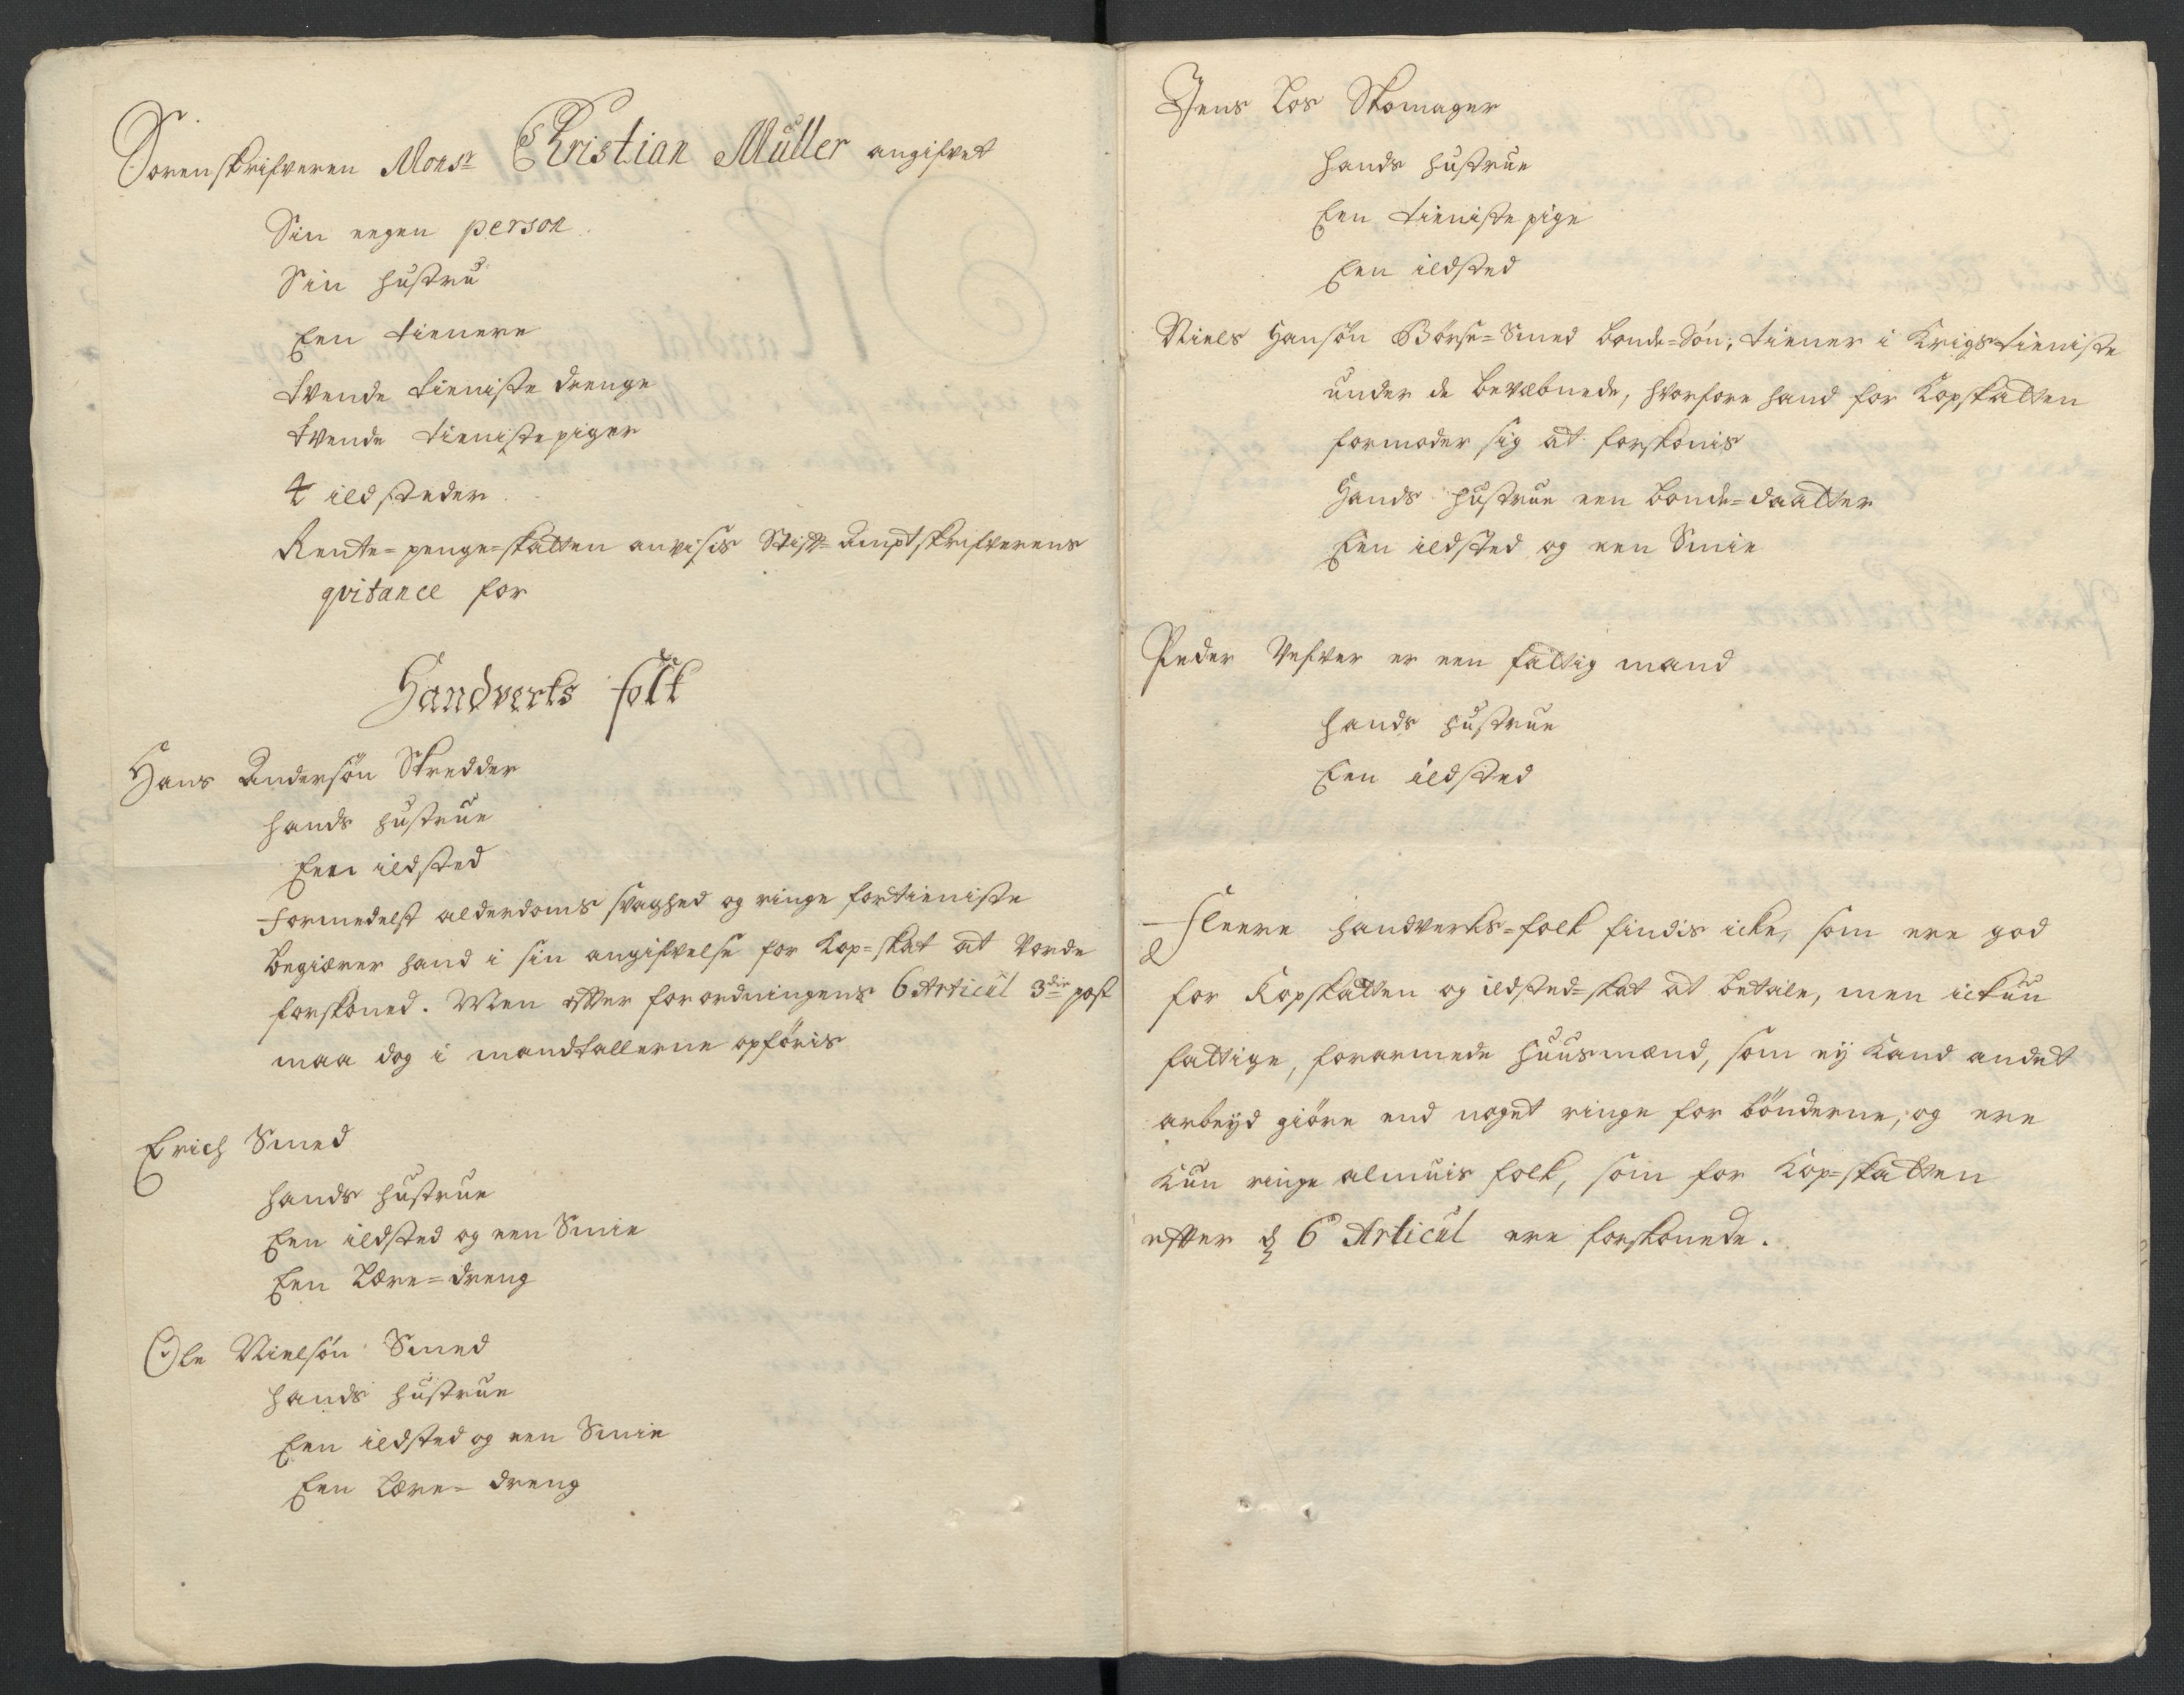 Sorenskrifveren Monsr Christian Müller angifvet
Sin eegen person.
Sin hustru
Een tienere
tvende tieniste drenge
tvende tienistepiger
4 ildsteder.
Rente=penge=skatten anvisis Stigt=Amptskrifverens
qvitance for
Handverks folk
Hans Andersøn Skredder
hands hustrue
Een ildsted
formedelst alderdoms svaghed og ringe fortieniste
begiærer hand i sin angifvelse for Kop=skat at vorde
forskoned. Men efter forordningens 6 Articul 3die post
maa dog i mandtallerne opføris
Erich Smed
hands hustrue
Een ildsted og een Smie
Een Lære=dreng
Ole Nielsøn Smed
hands hustrue
Een ildsted og een Smie
Een Lære=dreng
Jens Los Skomager
hands hustrue
Een tieniste pige
Een ildsted
Niels Hansøn Børse=Smed bonde=Søn, tiener i Krigstieniste
under de bevæbnede, hvorfore hand for Kopskatten
formoder sig at forskonis
Hands hustrue een bonde=daatter
Een ildsted og een Smie
Peder Vefver er een fattig mand
hands hustrue
Een ildsted
Fleere handverks=folk findis icke, som ere god
for Kopskatten og ildsted=skat at betale, men ickun
fattige, forarmede huusmænd, som ey kand andet
arbeyd giøre end noget ringe for bønderne, og ere
kun ringe almuis folk, som for Kop=skatten
efter d 6 Articul ere forskonede.